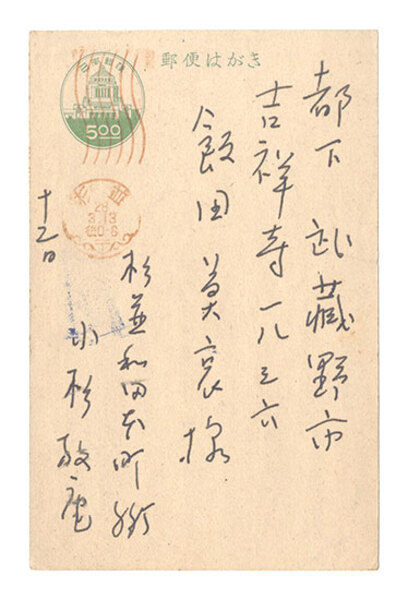 郵便はがき
5.00
杉並
28
3.13
後0-6
都下 武蔵野市
吉祥寺一八三六
飯田莫哀様
杉並和田本町
小杉放庵
十三日